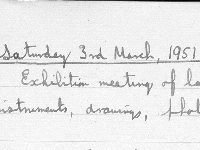 Saturday 3rd March, 1951
Exhibition meeting of
instruments, drawings,